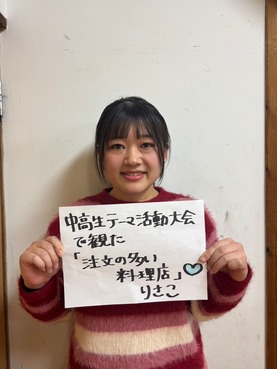 中高生テーマ活動大会
で観た
「注文の多い
料理店」
りさこ